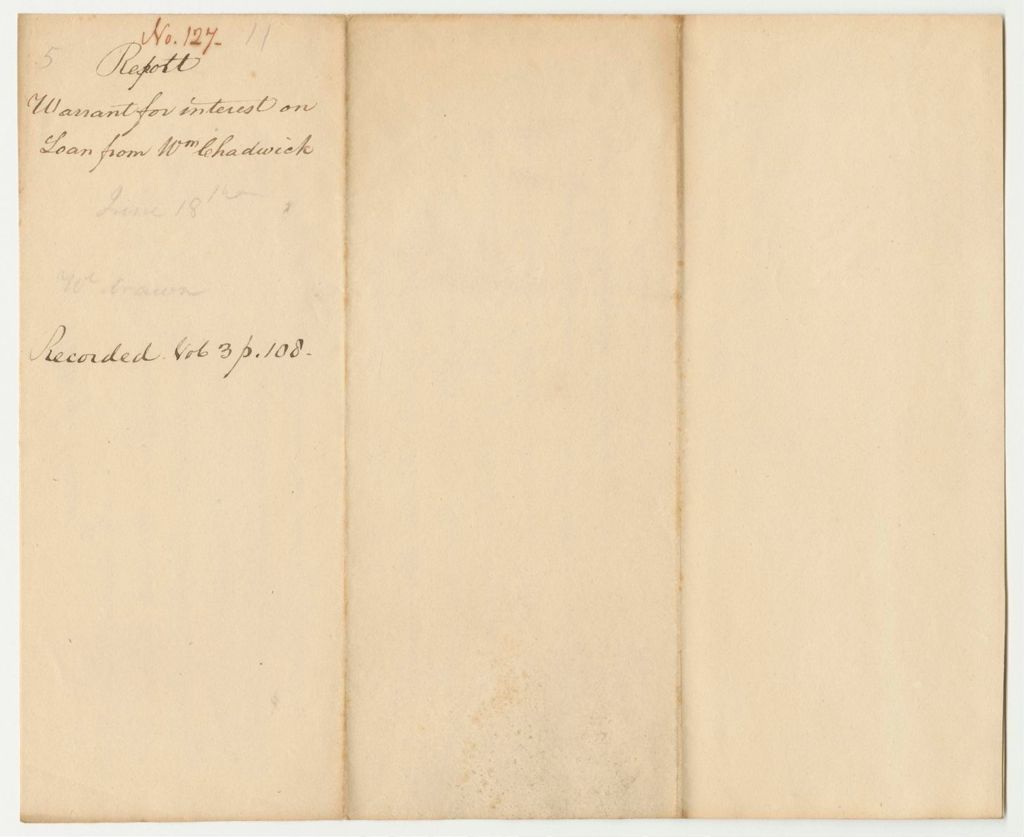 No. 127. 11
5
Report
Warrant for interest on
Loan from Wm Chadwick
June 18th
Wt drawn
Recorded Vol 3 p. 108.